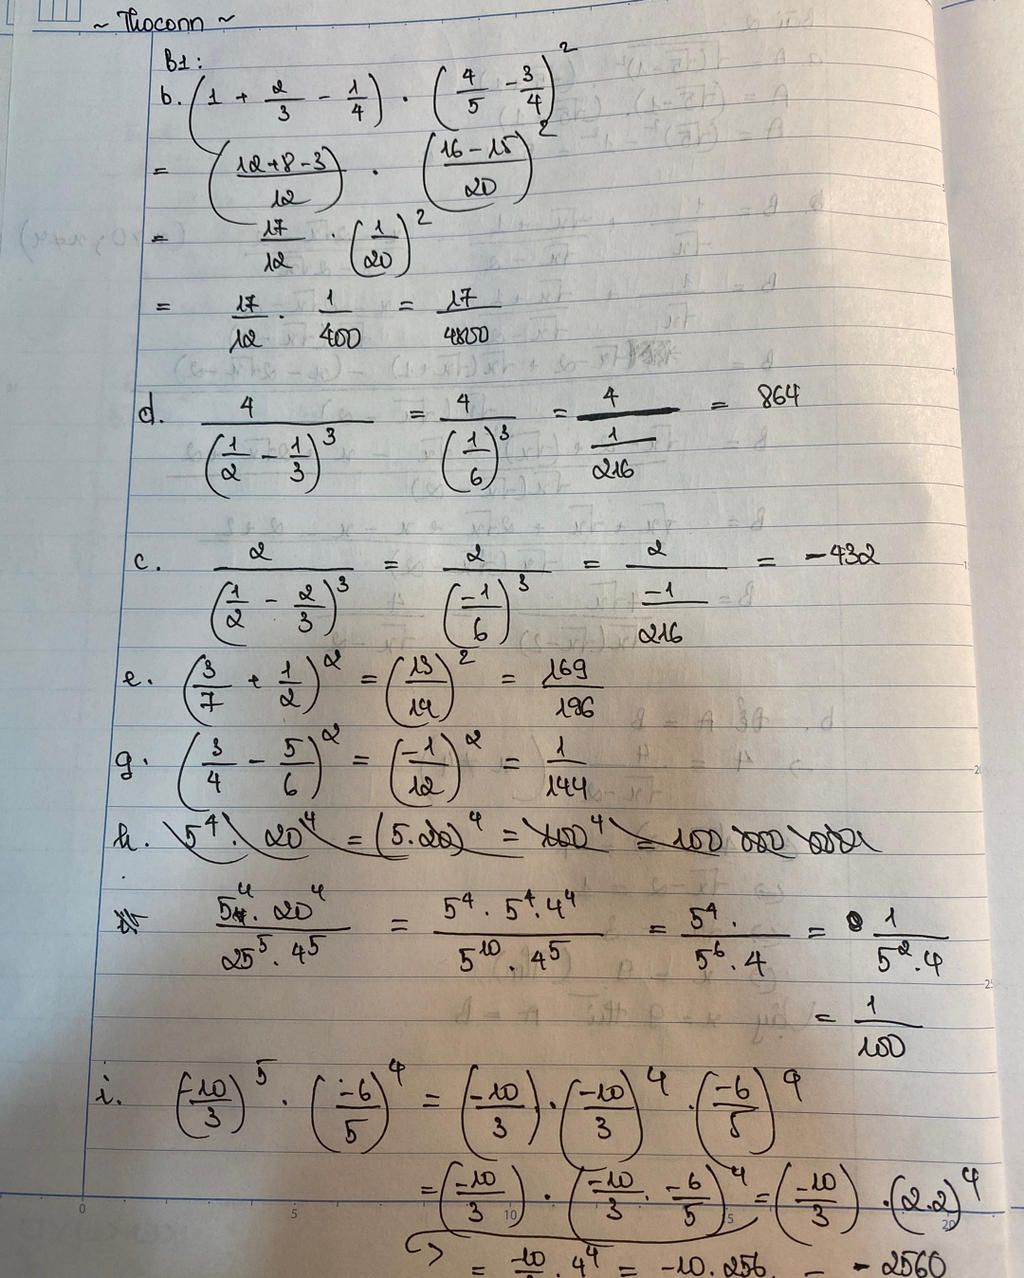 ~ Thoconn ~
B1:
b. (1 + 2/3 - 1/4) . (4/5 - 3/4)²
= ((12+8-3)/12) . ((16-15)/20)²
= 17/12 . (1/20)²
= 17/12 . 1/400 = 17/4800
d. 4/(1/2 - 1/3)³ = 4/(1/6)³ = 4/(1/216) = 864
c. 2/(1/2 - 2/3)³ = 2/(-1/6)³ = 2/(-1/216) = -432
e. (3/7 + 1/2)² = (13/14)² = 169/196
g. (3/4 - 5/6)² = (-1/12)² = 1/144
h. 5⁴ . 20⁴ = (5.20)⁴ = 100⁴ = 100
(5⁴ . 20⁴)/(25⁵ . 4⁵) = (5⁴ . 5⁴ . 4⁴)/(5¹⁰ . 4⁵) = 5⁴ . /(5⁶ . 4) = 1/(5² . 4)
= 1/100
i. (-10/3)⁵ . (-6/5)⁴ = (-10/3) . (-10/3)⁴ . (-6/5)⁴
= (-10/3) . (-10/3 . -6/5)⁴ = (-10/3) . (2.2)⁴
= -10/3 . 4⁴ = -10.256 = -2560
0 5 10 15 20